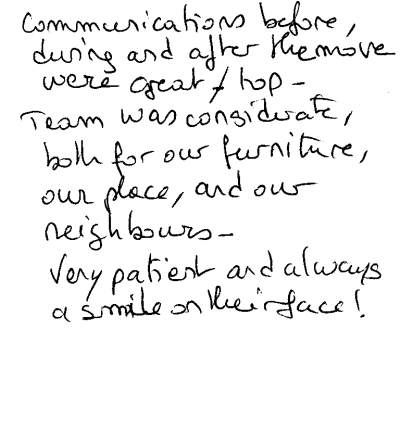 Communications before,
during and after the move
were great / top -
Team was considerate,
both for our furniture,
our place, and our
neighbours -
Very patient and always
a smile on their face!